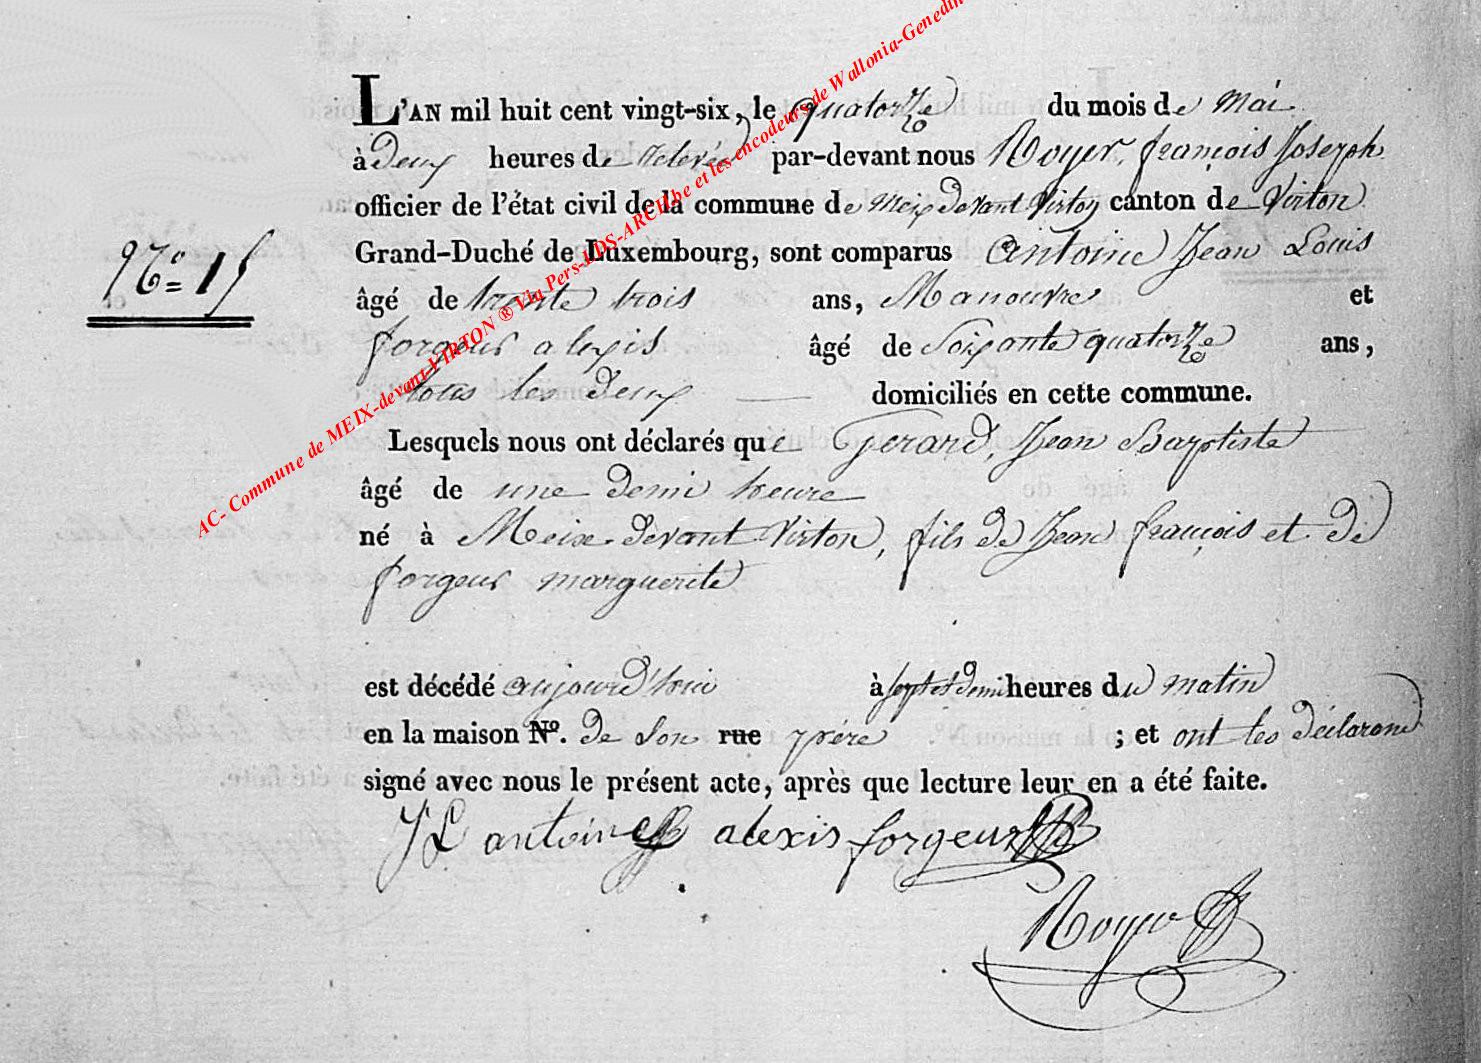 L'AN mil huit cent vingt-six, le quatorze du mois de Mai
à Deux heures de relevée par-devant nous Royer, françois Joseph
officier de l'état civil de la commune de Meix Devant Virton canton de Virton
Grand-Duché de Luxembourg, sont comparus Antoine Jean Louis
N.º 15
âgé de trente trois ans, Manouvre et
forgeur alexis âgé de Soixante quatorze ans,
tous les deux domiciliés en cette commune.
Lesquels nous ont déclarés que Gerard, Jean Baptiste
âgé de une demi heure
né à Meix devant Virton, fils de Jean françois et de
forgeur marguerite
est décédé aujourd'hui à sept et demi heures du matin
en la maison Nº. de son rue père ; et ont les déclarans
signé avec nous le présent acte, après que lecture leur en a été faite.
J L antoine alexis forgeur
Royer
AC- Commune de MEIX-devant-VIRTON ® Via Pers-LDS-ARCH.be et les encodeurs de Wallonia-Genedin